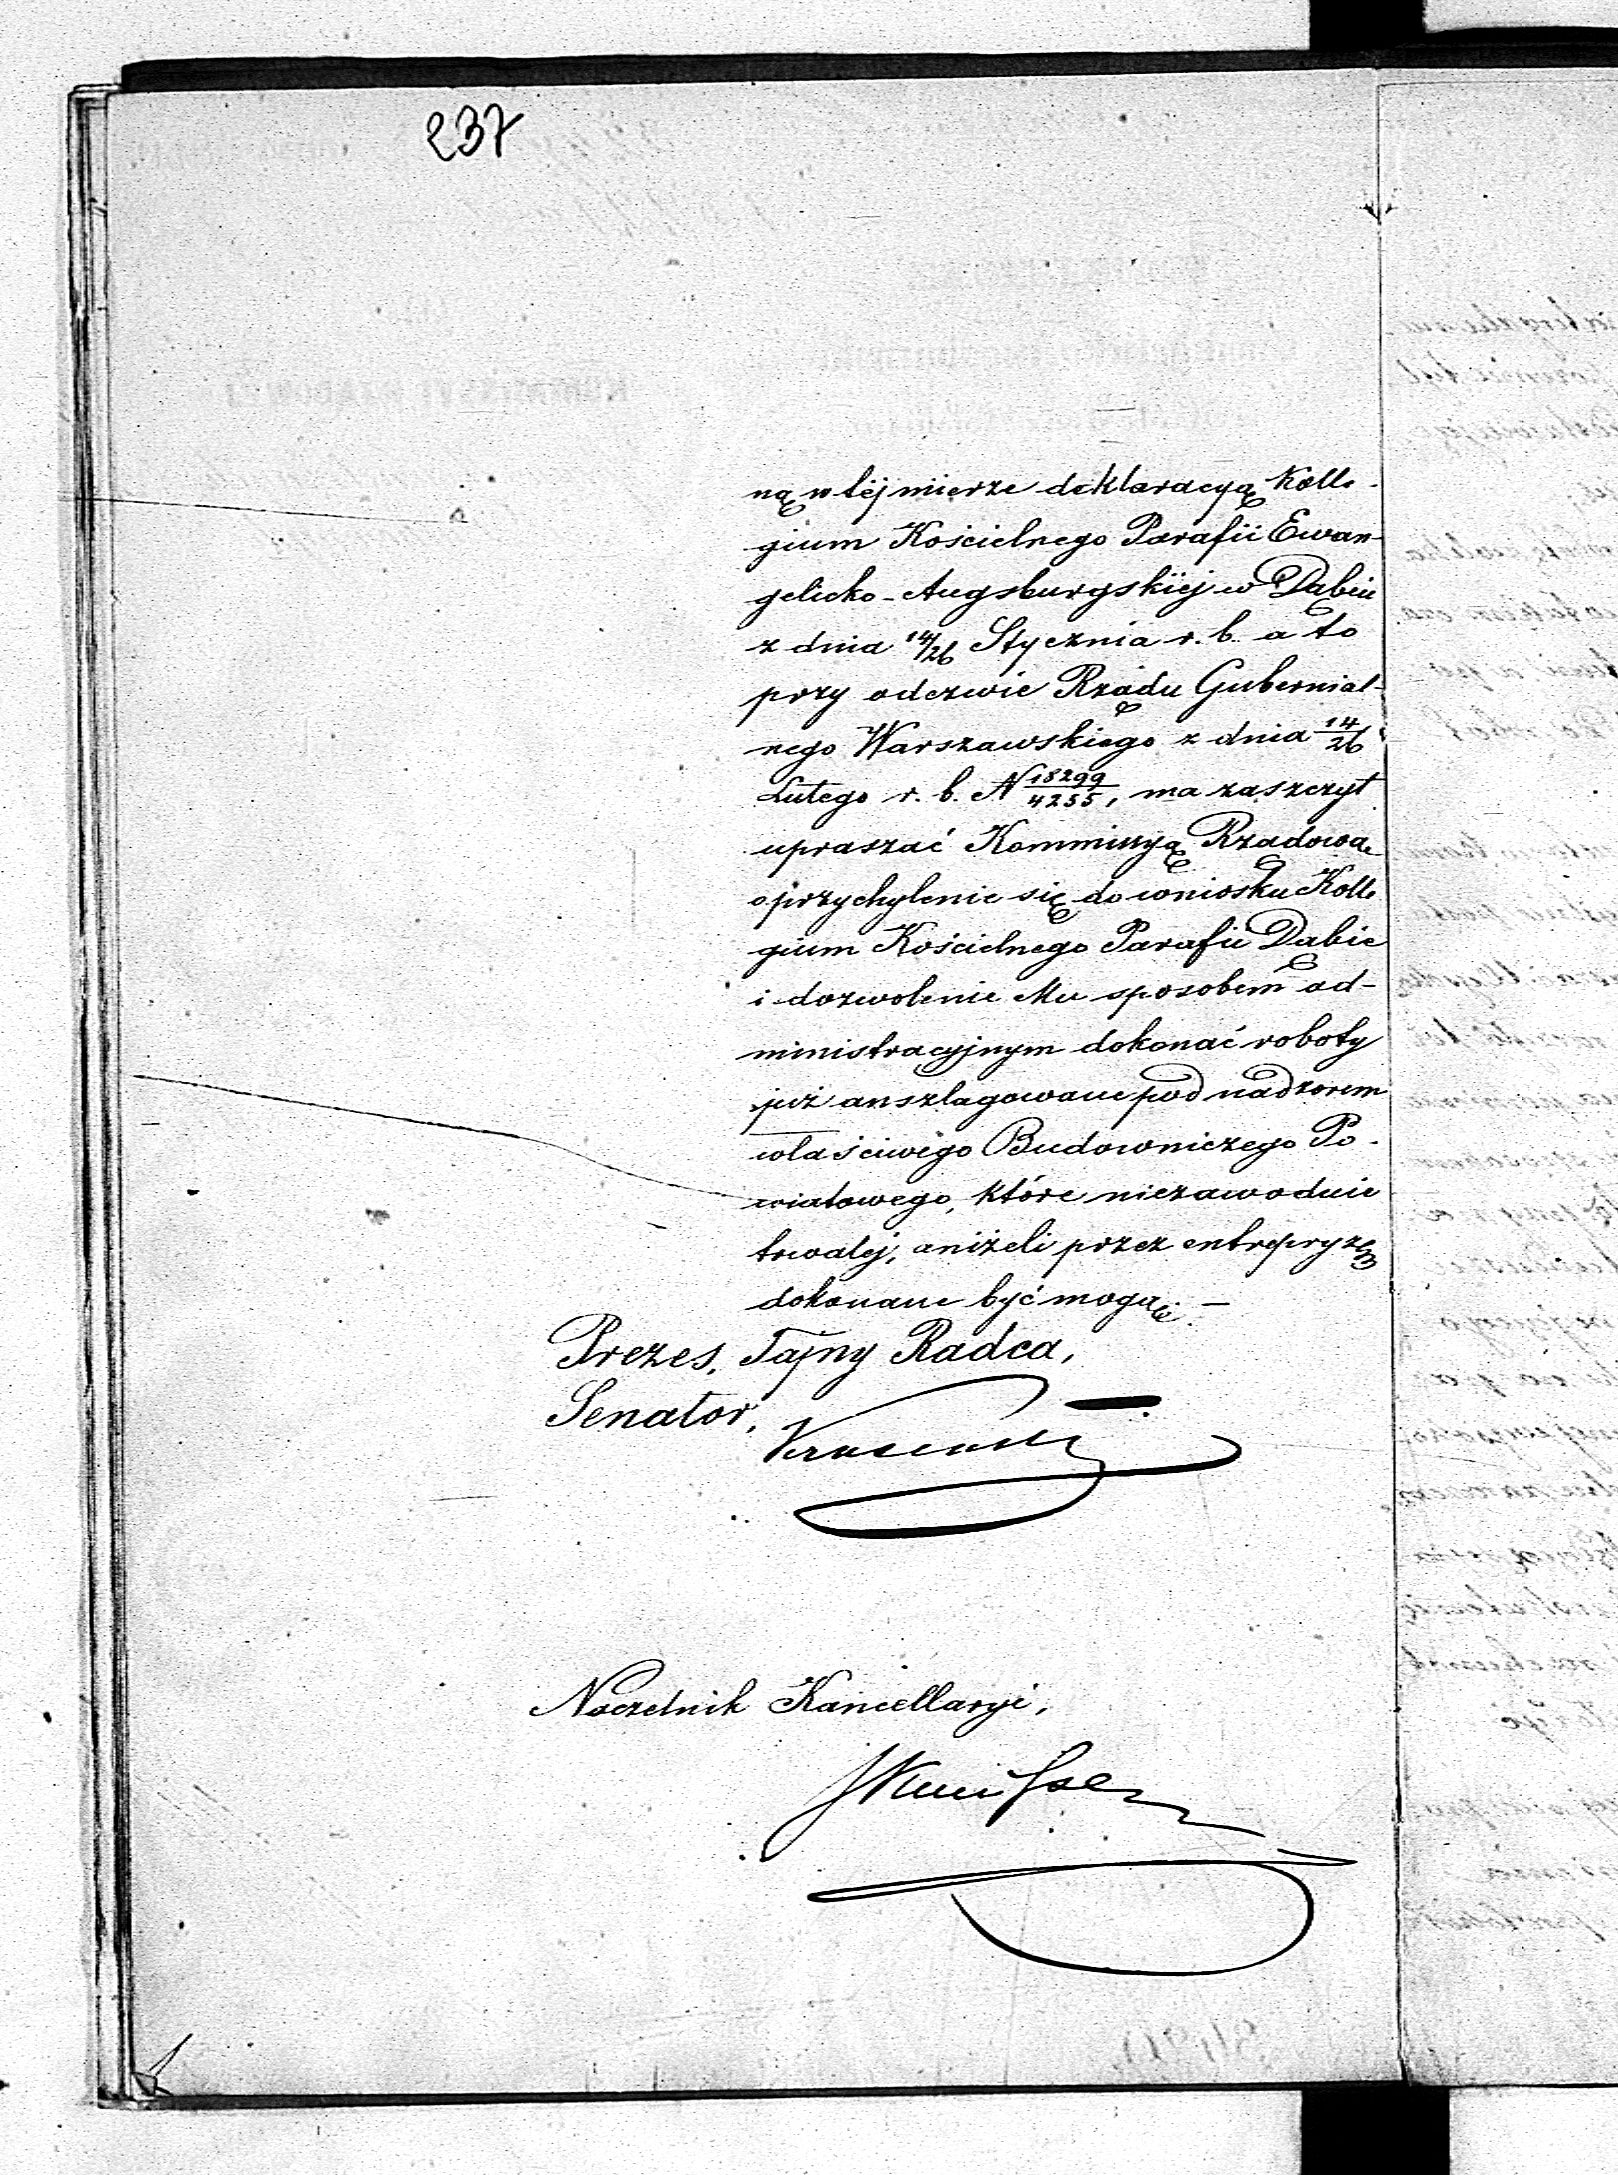 237
ną w téj mierze deklaracyą Kolle-
gium Kościelnego Parafii Ewan-
gelicko-Augsburgskiéj w Dąbiu
z dnia 14/26 Stycznia r. b. a to
przy odezwie Rządu Gubernial-
nego Warszawskiego z dnia 14/26
Lutego r. b. N 18299/4255, ma zaszczyt
upraszać Kommissyą Rządową
o przychylenie się do wniosku Kolle
gium Kościelnego Parafii Dąbie
i dozwolenie Mu sposobem ad-
ministracyjnym dokonać roboty
już anszlagowane pod nadzorem
właściwego Budowniczego Po-
wiatowego, które niezawodnie
trwaléj, aniżeli przez entrepryzę
dokonane być mogą. —
Prezes, Tajny Radca,
Senator,
Naczelnik Kancellaryi,